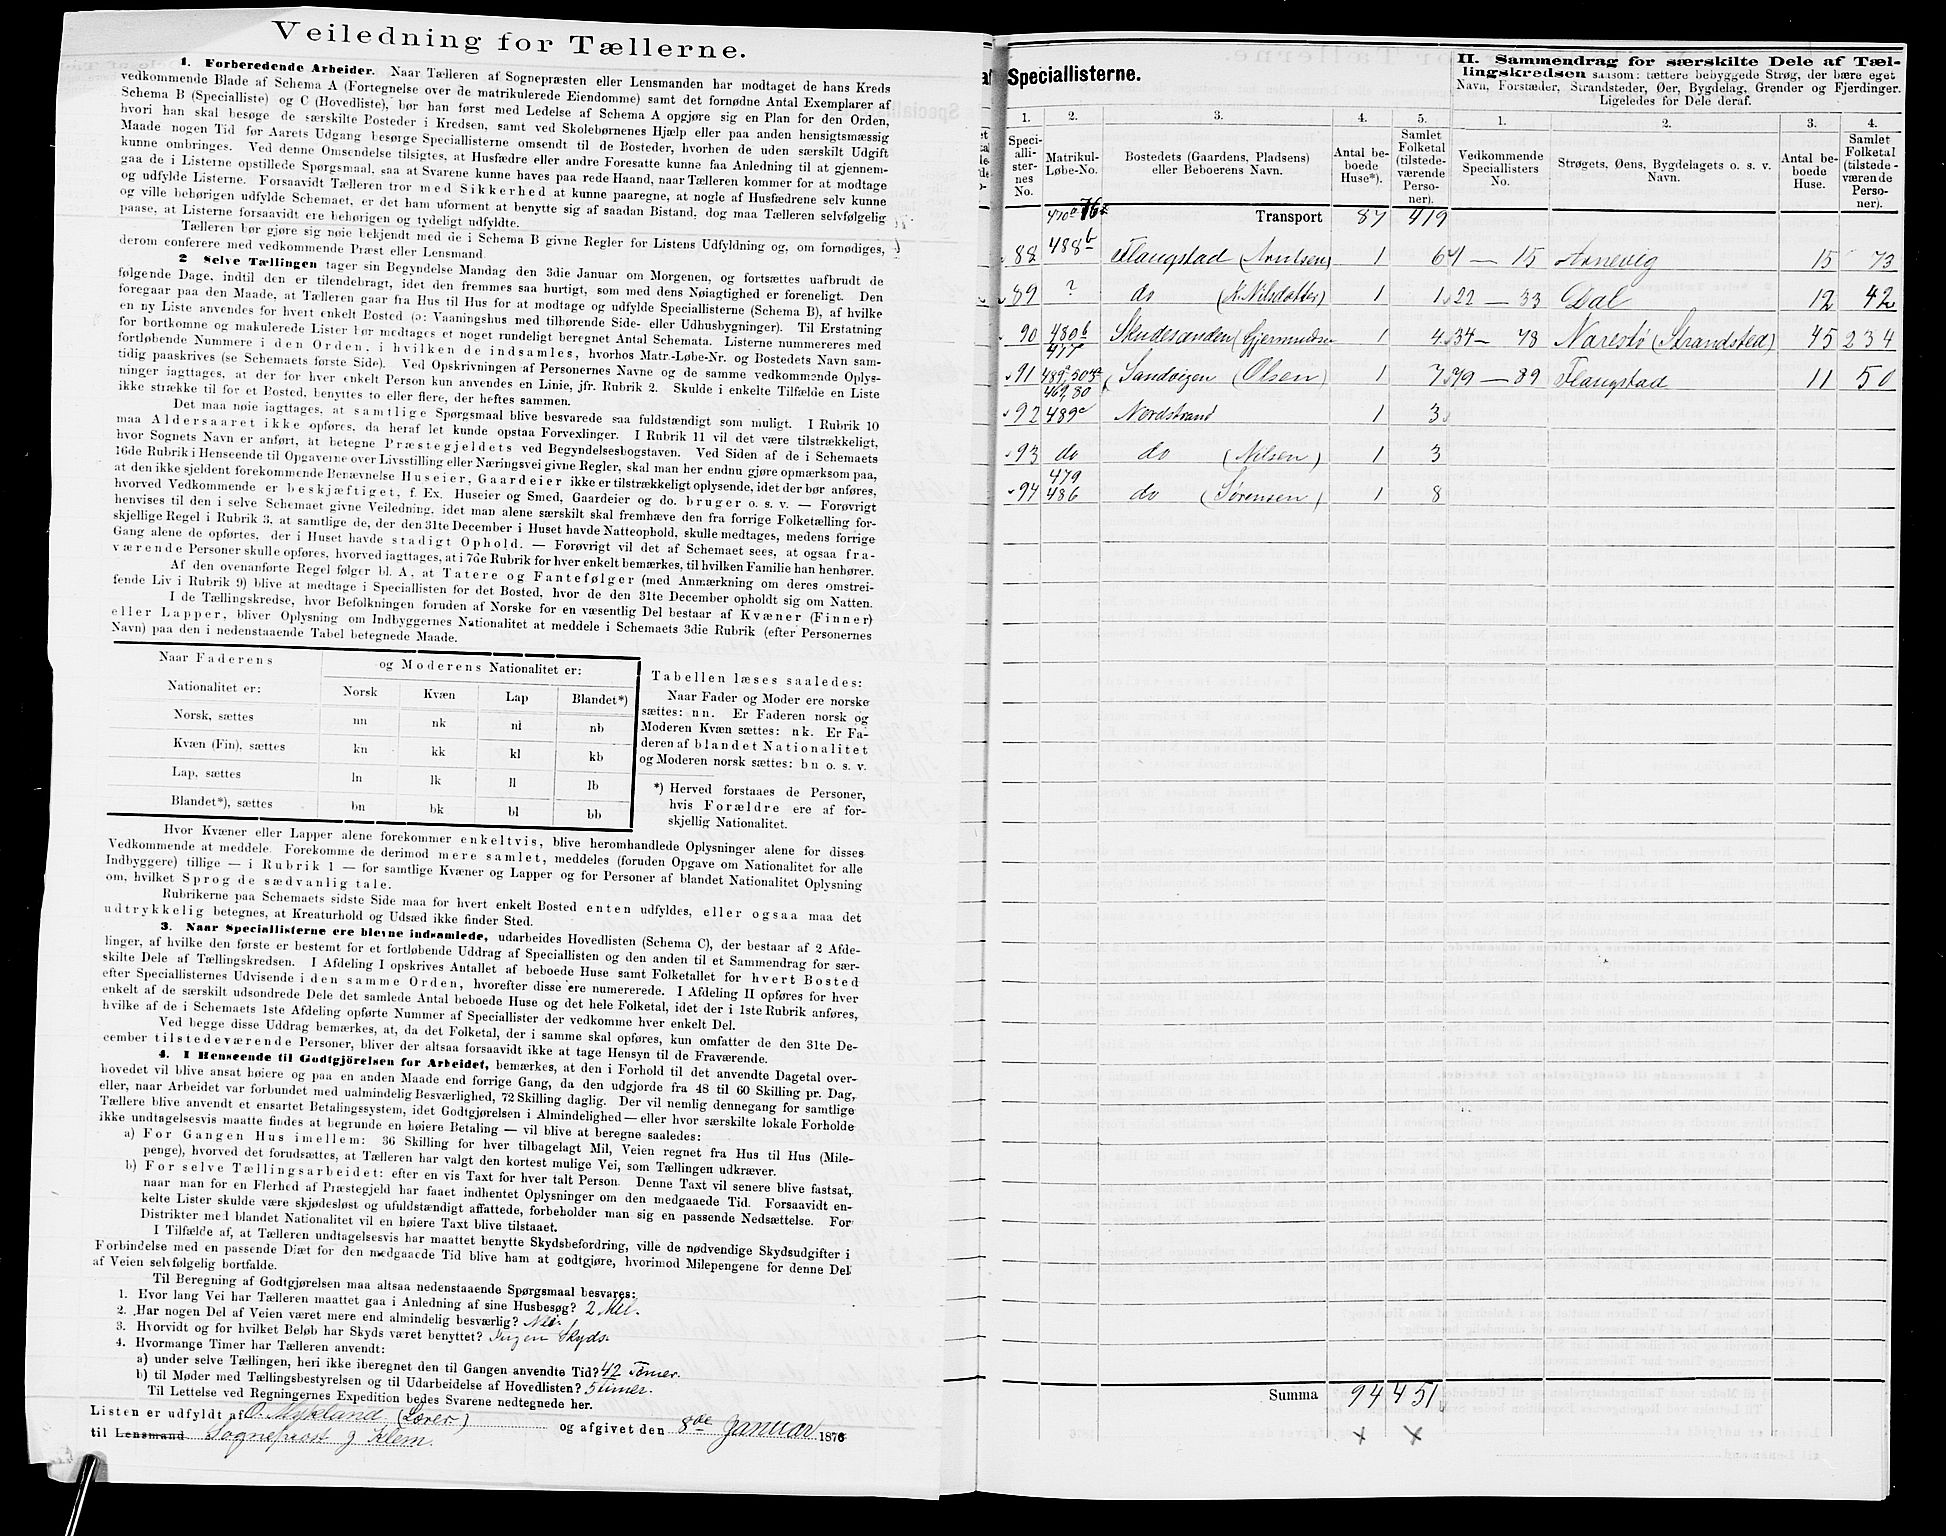 Veiledning for Tællerne.
1. Forberedende Arbeider. Naar Tælleren af Sognepræsten eller Lensmanden har modtaget de hans Kreds
vedkommende Blade af Schema A (Fortegnelse over de matrikulerede Eiendomme) samt det fornødne Antal Exemplarer af
Schema B (Specialliste) og C (Hovedliste), bør han først med Ledelse af Schema A opgjøre sig en Plan for den Orden,
hvori han skal besøge de særskilte Bosteder i Kredsen, samt ved Skolebørnenes Hjælp eller paa anden hensigtsmæssig
Maade nogen Tid før Aarets Udgang besørge Speciallisterne omsendt til de Bosteder, hvorhen de uden særskilt Udgift
kunne ombringes. Ved denne Omsendelse tilsigtes, at Husfædre eller andre Foresatte kunne faa Anledning til at gjennem-
gaa de i Listerne opstillede Spørgsmaal, saa at Svarene kunne haves paa rede Haand, naar Tælleren kommer for at modtage
og udfylde Listerne. Forsaavidt Tælleren tror med Sikkerhed at kunne paaregne, at nogle af Husfædrene selv kunne
og ville behørigen udfylde Schemaet, er det ham uforment at benytte sig af saadan Bistand, dog maa Tælleren selvfølgelig
paase, at Listerne forsaavidt ere behørigen og tydeligt udfyldte.
Tælleren bør gjøre sig nøie bekjendt med de i Schema B givne Regler for Listens Udfyldning og, om fornødiges,
derom conferere med vedkommende Præst eller Lensmand.
2 Selve Tællingen tager sin Begyndelse Mandag den 3die Januar om Morgenen, og fortsættes uafbrudt de
følgende Dage, indtil den er tilendebragt, idet den fremmes saa hurtigt, som med dens Nøiagtighed er foreneligt. Den
foregaar paa den Maade, at Tælleren gaar fra Hus til Hus for at modtage og udfylde Speciallisterne (Schema B), af hvilke
en ny Liste anvendes for hvert enkelt Bosted (ɔ: Vaaningshus med tilhørende Side- eller Udhusbygninger). Til Erstatning
for bortkomne og makulerede Lister bør medtages et noget rundeligt beregnet Antal Schemata. Listerne nummereres med
fortløbende Nummere i den Orden, i hvilken de indsamles, hvorhos Matr.-Løbe-Nr. og Bostedets Navn sam-
tidig paaskrives (se Schemaets første Side). Ved Opskrivningen af Personernes Navne og de samme vedkommende Oplys-
ninger iagttages, at der for hver enkelt Person kun anvendes en Linie, jfr. Rubrik 2. Skulde i enkelte Tilfælde en Liste
ikke strække til for et Bosted, benyttes to eller flere, der heftes sammen.
Det maa nøie iagttages, at samtlige Spørgsmaal blive besvarede saa fuldstændigt som muligt. I Rubrik 10
maa Aldersaaret ikke opføres, da heraf let kunde opstaa Forvexlinger. I Rubrik 11 vil det være tilstrækkeligt,
hvor Sognets Navn er anført, at betegne Præstegjeldets ved Begyndelsesbogstaven. Ved Siden af de i Schemaets
16de Rubrik i Henseende til Opgaverne over Livsstilling eller Næringsvei givne Regler, skal man her endnu gjøre opmærksom paa,
at den ikke sjeldent forekommende Benævnelse Huseier, Gaardeier ikke er tilstrækkeligt oplysende, idet der bør anføres,
hvorved Vedkommende er beskjæftiget, f. Ex. Huseier og Smed, Gaardeier og do. bruger o. s. v. — Forøvrigt
henvises til den i selve Schemaet givne Veiledning, idet man alene særskilt skal fremhæve den fra forrige Folketælling for-
skjellige Regel i Rubrik 3, at samtlige de, der den 31te December i Huset havde Natteophold, skulle medtages, medens forrige
Gang alene de opførtes, der i Huset havde stadigt Ophold. — Forøvrigt vil det af Schemaet sees, at ogsaa fra-
værende Personer skulle opføres, hvorved iagttages, at i 7de Rubrik for hver enkelt bemærkes, til hvilken Familie han henhører.
Af den ovenanførte Regel følger bl. A. at Tatere og Fantefølger (med Anmærkning om deres omstrei-
fende Liv i Rubrik 9) blive at medtage i Speciallisten for det Bosted, hvor de den 31te December opholdt sig om Natten.
I de Tællingskredse, hvor Befolkningen foruden af Norske for en væsentlig Del bestaar af Kvæner (Finner)
eller Lapper, bliver Oplysning om Indbyggernes Nationalitet at meddele i Schemaets 3die Rubrik (efter Personernes
Navn) paa den i nedenstaaende Tabel betegnede Maade.
Naar Faderens Nationalitet er:
og Moderens Nationalitet er:
Norsk Kvæn Lap Blandet*)
Norsk, sættes nn nk nl nb
Kvæn (Fin), sættes kn kk kl kb
Lap, sættes ln lk ll lb
Blandet*), sættes bn bk bl bb
Tabellen læses saaledes:
Naar Fader og Moder ere norske
sættes: nn. Er Faderen norsk og
Moderen Kvæn sættes: nk. Er Fa-
deren af blandet Nationalitet
og Moderen norsk sættes: bn o. s. v.
*) Herved forstaaes de Personer,
hvis Forældre ere af for-
skjellig Nationalitet.
Hvor Kvæner eller Lapper alene forekommer enkeltvis, blive heromhandlede Oplysninger alene for disses
Vedkommende at meddele. Forekomme de derimod mere samlet, meddeles (foruden Opgave om Nationalitet for alle
Indbyggere) tillige — i Rubrik 1 — for samtlige Kvæner og Lapper og for Personer af blandet Nationalitet Oplysning
om, hvilket Sprog de sædvanlig tale.
Rubrikerne paa Schemaets sidste Side maa for hvert enkelt Bosted enten udfyldes, eller ogsaa maa det
udtrykkelig betegnes, at Kreaturhold og Udsæd ikke finder Sted.
3. Naar Speciallisterne ere blevne indsamlede, udarbeides Hovedlisten (Schema C), der bestaar af 2 Afde-
linger, af hvilke den første er bestemt for et fortløbende Uddrag af Speciallisten og den anden til et Sammendrag for sær-
skilte Dele af Tællingskredsen. I Afdeling I opskrives Antallet af beboede Huse samt Folketallet for hvert Bosted
efter Speciallisternes Udvisende i den samme Orden, hvorefter disse ere numererede. I Afdeling II opføres for hver
enkelt af de særskilt udsondrede Dele det samlede Antal beboede Huse og det hele Folketal, idet der i 1ste Rubrik anføres,
hvilke af de i Schemaets 1ste Afdeling opførte Nummer af Speciallister der vedkomme hver enkelt Del.
Ved begge disse Uddrag bemærkes, at, da det Folketal, der i samme skal opføres, kun omfatter de den 31te De-
cember tilstedeværende Personer, bliver der altsaa forsaavidt ikke at tage Hensyn til de Fraværende.
4. I Henseende til Godtgjörelsen for Arbeidet, bemærkes, at den i Forhold til det anvendte Dagetal over-
hovedet vil blive ansat høiere og paa en anden Maade end forrige Gang, da den udgjorde fra 48 til 60 Skilling pr. Dag,
eller, naar Arbeidet var forbundet med ualmindelig Besværlighed, 72 Skilling daglig. Der vil nemlig dennegang for samtlige
Tællere blive anvendt et ensartet Betalingssystem, idet Godtgjørelsen i Almindelighed — eller hvor særskilte lokale Forholde
ikke undtagelsesvis maatte findes at begrunde en høiere Betaling — vil blive at beregne saaledes:
a) For Gangen Hus imellem: 36 Skilling for hver tilbagelagt Mil, Veien regnet fra Hus til Hus (Mile-
penge), hvorved det forudsættes, at Tælleren har valgt den kortest mulige Vei, som Tællingen udkræver.
b) For selve Tællingsarbeidet: efter en vis Taxt for hver talt Person. Denne Taxt vil senere blive fastsat,
naar man for en Flerhed af Præstegjeld har faaet indhentet Oplysninger om den medgaaede Tid. Forsaavidt en-
kelte Lister skulde være skjødesløst og ufuldstændigt affattede, forbeholder man sig en passende Nedsættelse. For
Distrikter med blandet Nationalitet vil en høiere Taxt blive tilstaaet.
I Tilfælde af, at Tælleren undtagelsesvis har maattet benytte Skydsbefordring, ville de nødvendige Skydsudgifter i
Forbindelse med en passende Diæt for den medgaaede Tid blive ham at godtgjøre, hvorimod Milepengene for denne Del
af Veien selvfølgelig bortfalde.
Til Beregning af Godtgjørelsen maa altsaa nedenstaaende Spørgsmaal besvares:
1. Hvor lang Vei har Tælleren maattet gaa i Anledning af sine Husbesøg? 2 Mil.
2. Har nogen Del af Veien været mere end almindelig besværlig? Nei.
3. Hvorvidt og for hvilket Beløb har Skyds været benyttet? Ingen Skyds.
4. Hvormange Timer har Tælleren anvendt:
a) under selve Tællingen, heri ikke iberegnet den til Gangen anvendte Tid? 42 Timer.
b) til Møder med Tællingsbestyrelsen og til Udarbeidelse af Hovedlisten? 5 Timer.
Til Lettelse ved Regningernes Expedition bedes Svarene nedtegnede her.
Listen er udfyldt af O. Mykland (Lærer) og afgivet den 8de Januar 1876
til Lensmand Sogneprost g Klem.
Speciallisterne.
II. Sammendrag for særskilte Dele af Tæl-
lingskredsen saasom: tættere bebyggede Strøg, der bære eget
Navn, Forstæder, Strandsteder, Øer, Bygdelag, Grender og Fjerdinger.
Ligeledes for Dele deraf.
1. 2. 3. 4. 5. 1. 2. 3. 4.
Speci-alli-ster-nes No.
Matrikul-Løbe-No.
Bostedets (Gaardens, Pladsens) eller Beboerens Navn.
Antal be-boede Huse*).
Samlet Folketal (tilstede-værende Perso-ner).
Vedkommende Speciallisters No.
Strøgets, Øens, Bygdelagets o. s. v. Navn.
Antal be-boede Huse.
Samlet Folketal (tilstede-værende Perso-ner).
470a Transport 87 419
88 488b Flangstad (Arnulsen) 1 6 1 — 15 Arnevig 15 73
89 ? do (K. Nilsdatter) 1 1 22 — 33 Dal 12 42
90 480b Skudesanden (Gjermundsen 1 4 34 — 78 Narestø (Strandsted) 45 234
477
91 489a, 50 Sandvigen (Olsen) 1 7 79 — 89 Flangstad 11 50
469, 80
92 489c Nordstrand 1 3
93 do do (Nilsen) 1 3
479
94 486 do (Sørensen) 1 8
Summa 94 451
× ×